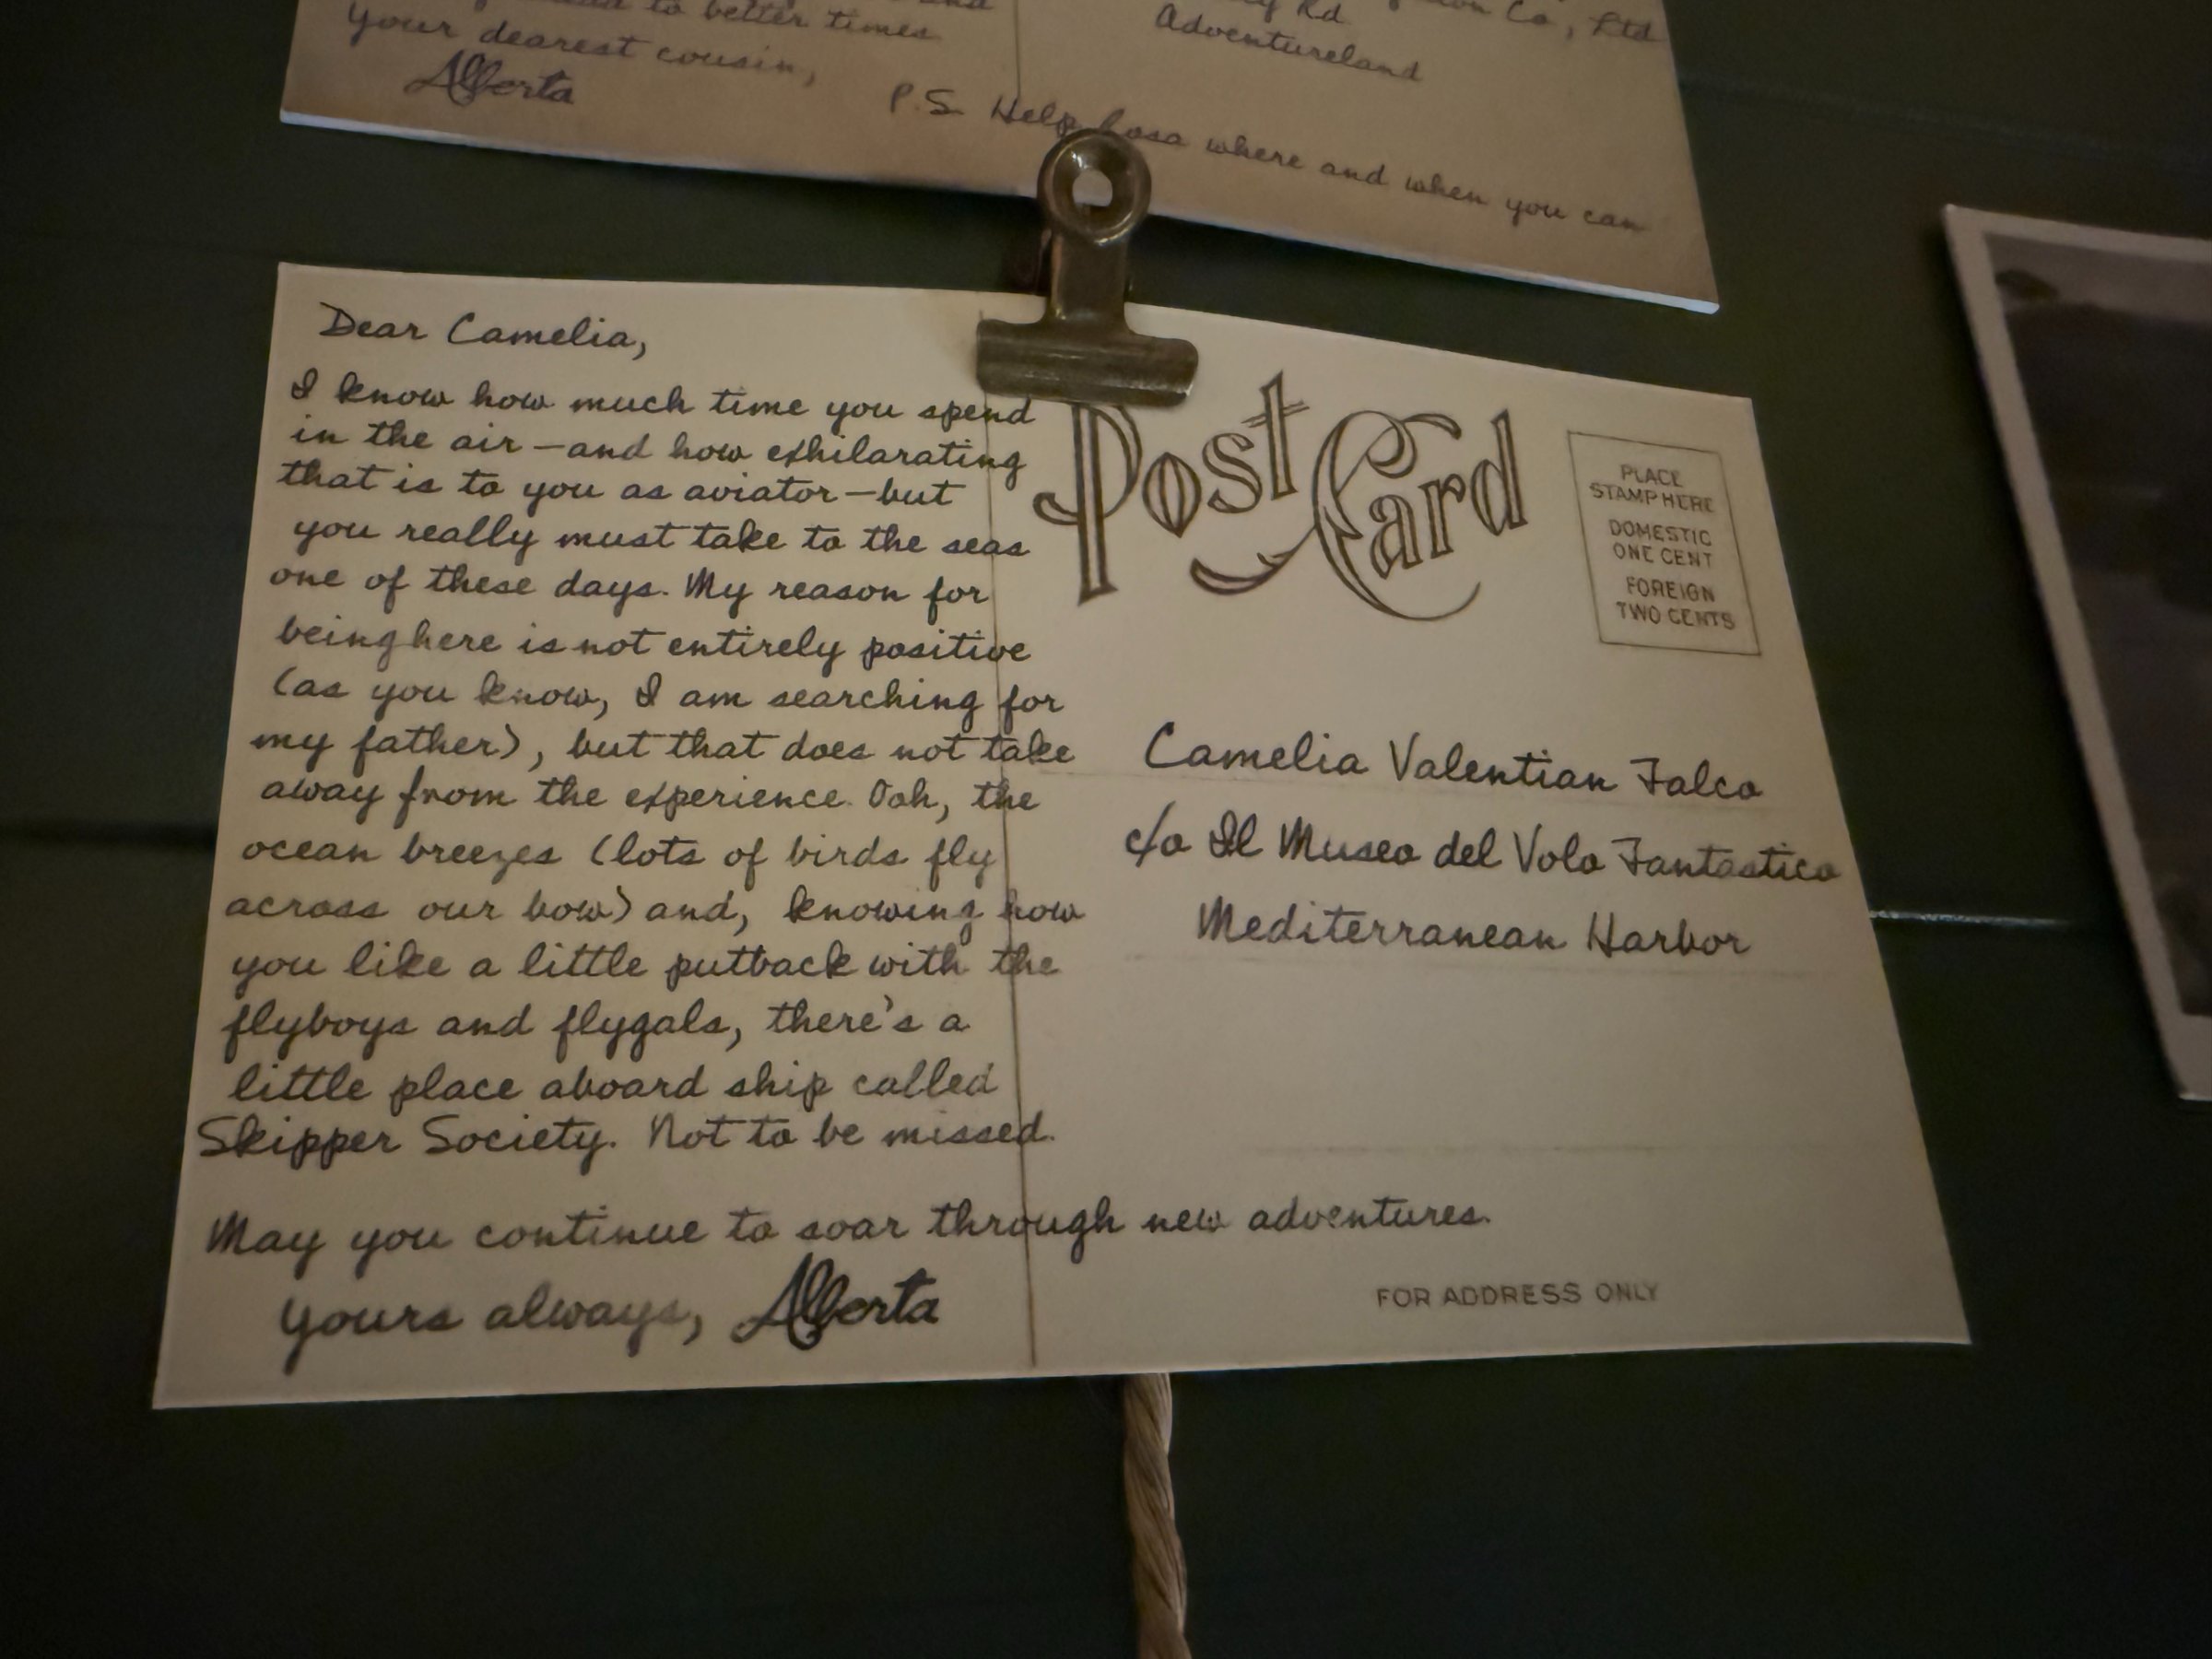 to better times
your dearest cousin,
Alberta
Rd
Co, Ltd
Adventureland
P.S. Help Rosa where and when you can
Dear Camelia,
I know how much time you spend
in the air—and how exhilarating
that is to you as aviator—but
you really must take to the seas
one of these days. My reason for
being here is not entirely positive
(as you know, I am searching for
my father), but that does not take
away from the experience. Ooh, the
ocean breezes (lots of birds fly
across our bow) and, knowing how
you like a little putback with the
flyboys and flygals, there's a
little place aboard ship called
Skipper Society. Not to be missed.
May you continue to soar through new adventures.
Yours always, Alberta
Post Card
PLACE
STAMP HERE
DOMESTIC
ONE CENT
FOREIGN
TWO CENTS
Camelia Valentian Falco
c/o Il Museo del Volo Fantastico
Mediterranean Harbor
FOR ADDRESS ONLY